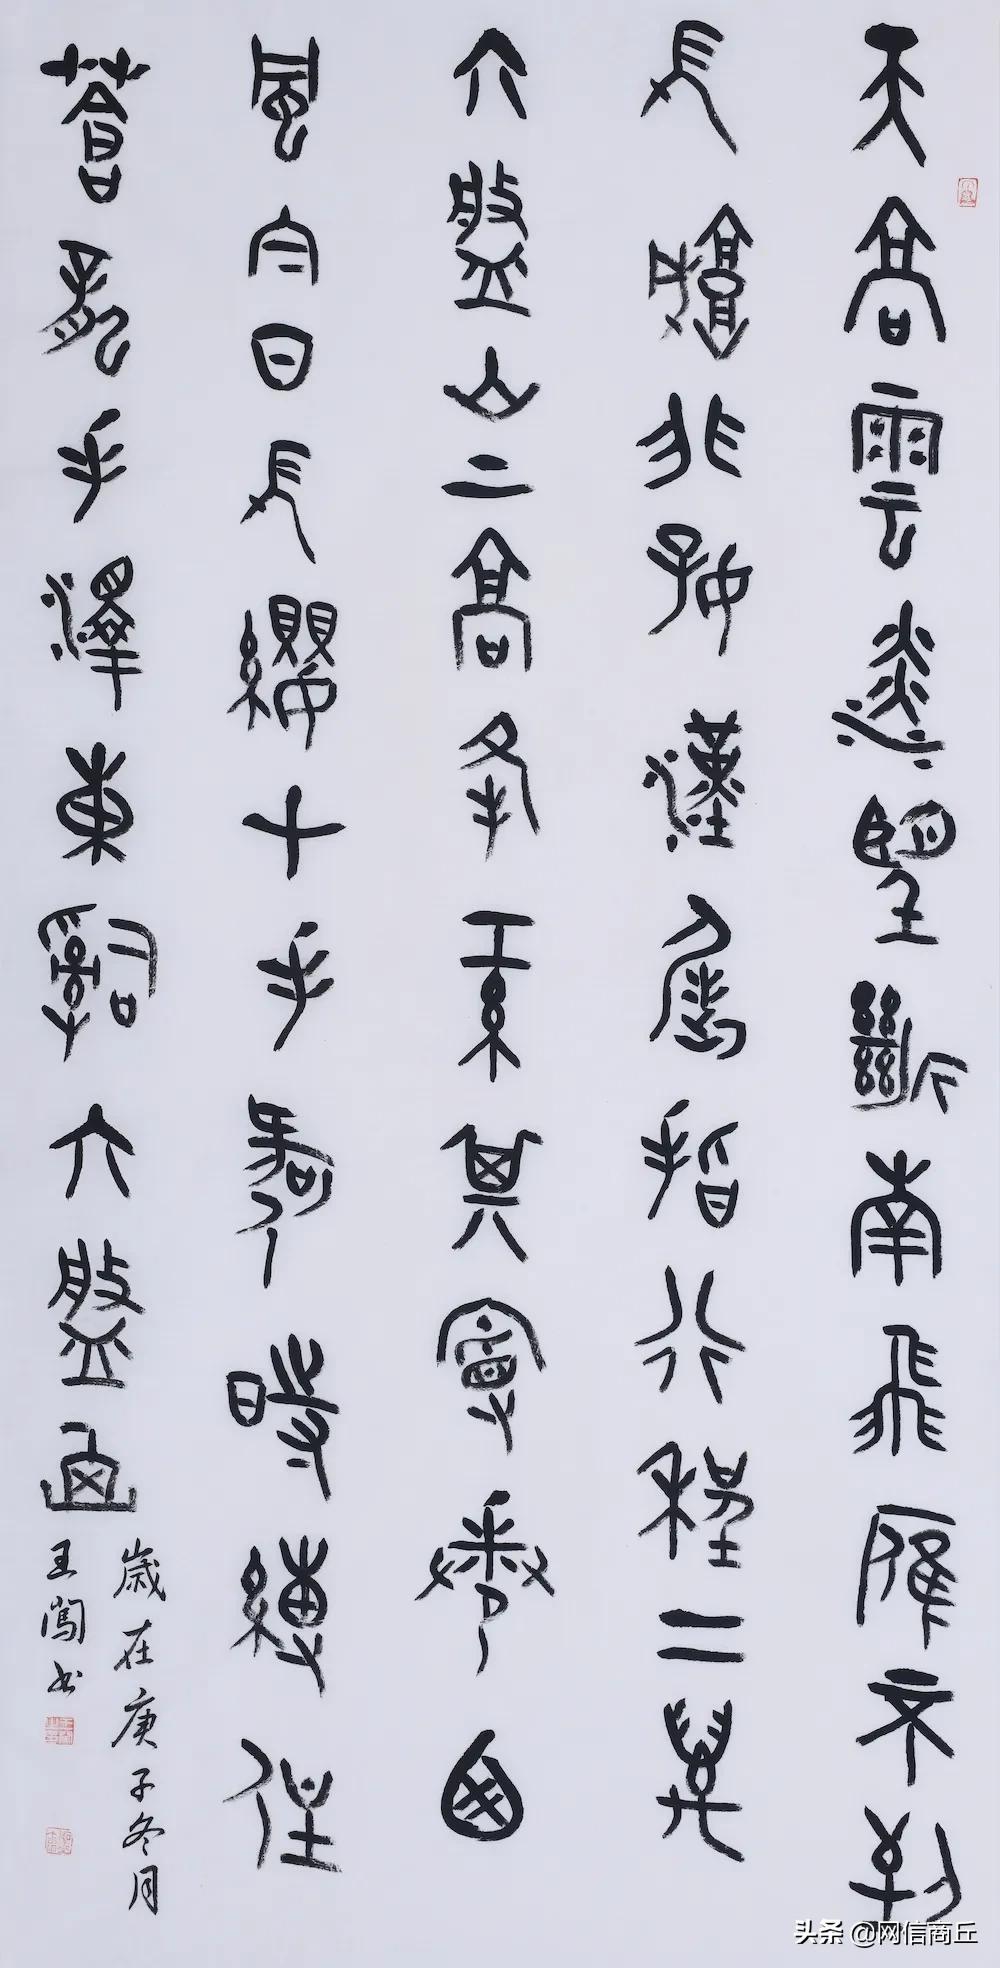 天高雲淡望斷南飛雁不到
長城非好漢屈指行程二萬
六盤山上高峰紅旗漫卷西
風今日長纓在手何時縛住
蒼龍毛澤東詞六盤山
歲在庚子冬月
王闖书
头条 @网信商丘